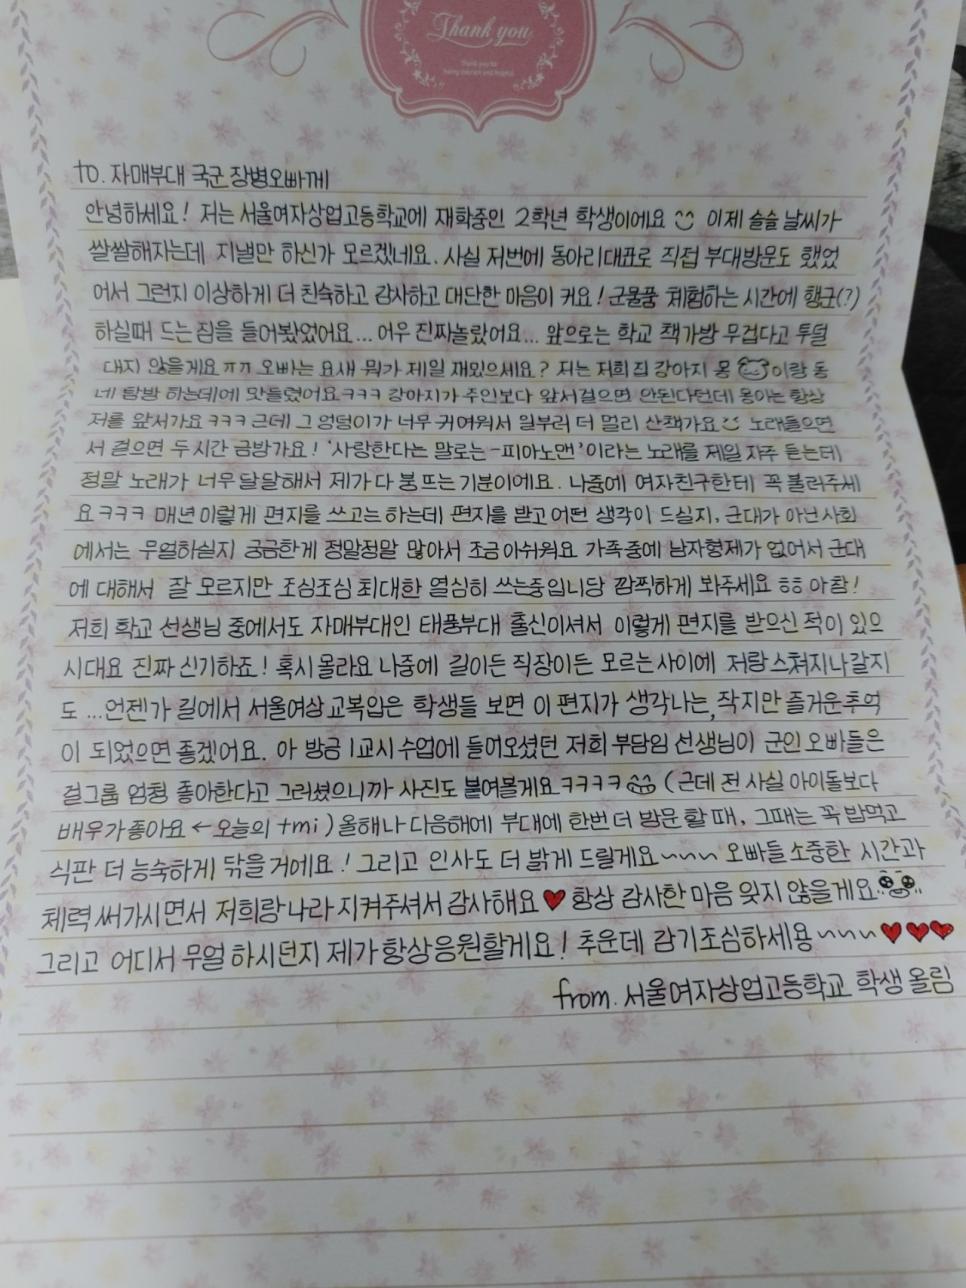 Thank you
to. 자매부대 국군 장병오빠께
안녕하세요! 저는 서울여자상업고등학교에 재학중인 2학년 학생이에요 이제 슬슬 날씨가
쌀쌀해지는데 지낼만 하신가 모르겠네요. 사실 저번에 동아리대표로 직접 부대방문도 했었
어서 그런지 이상하게 더 친숙하고 감사하고 대단한 마음이 커요! 군물품 체험하는 시간에 행군(?)
하실때 드는 짐을 들어봤었어요... 어우 진짜놀랐어요... 앞으로는 학교 책가방 무겁다고 투덜
대지 않을게요ㅠㅠ 오빠는 요새 뭐가 제일 재밌으세요? 저는 저희집 강아지 몽이랑 동
네 탐방 하는데에 맛들렸어요ㅋㅋㅋ 강아지가 주인보다 앞서걸으면 안된다던데 몽이는 항상
저를 앞서가요ㅋㅋㅋ 근데 그 엉덩이가 너무 귀여워서 일부러 더 멀리 산책가요 노래들으면
서 걸으면 두시간 금방가요! '사랑한다는 말로는-피아노맨'이라는 노래를 제일 자주 듣는데
정말 노래가 너무 달달해서 제가 다 붕 뜨는 기분이에요. 나중에 여자친구한테 꼭 불러주세
요ㅋㅋㅋ 매년 이렇게 편지를 쓰고는 하는데 편지를 받고 어떤 생각이 드실지, 군대가 아닌 사회
에서는 무얼하실지 궁금한게 정말정말 많아서 조금 아쉬워요 가족중에 남자형제가 없어서 군대
에 대해서 잘 모르지만 조심조심 최대한 열심히 쓰는중입니당 깜찍하게 봐주세요 ㅎㅎ 아참!
저희 학교 선생님 중에서도 자매부대인 태풍부대 출신이셔서 이렇게 편지를 받으신 적이 있으
시대요 진짜 신기하죠! 혹시 몰라요 나중에 길이든 직장이든 모르는사이에 저랑 스쳐지나갈지
도 ...언젠가 길에서 서울여상 교복입은 학생들 보면 이 편지가 생각나는, 작지만 즐거운추억
이 되었으면 좋겠어요. 아 방금 1교시 수업에 들어오셨던 저희 부담임 선생님이 군인 오빠들은
걸그룹 엄청 좋아한다고 그러셨으니까 사진도 붙여볼게요ㅋㅋㅋㅋ (근데 전 사실 아이돌보다
배우가 좋아요 ← 오늘의 tmi) 올해나 다음해에 부대에 한번 더 방문 할 때, 그때는 꼭 밥먹고
식판 더 능숙하게 닦을 거에요! 그리고 인사도 더 밝게 드릴게요~~~ 오빠들 소중한 시간과
체력 써가시면서 저희랑 나라 지켜주셔서 감사해요♥ 항상 감사한 마음 잊지 않을게요
그리고 어디서 무얼 하시던지 제가 항상 응원할게요! 추운데 감기조심하세용~~~♥♥♥
from. 서울여자상업고등학교 학생 올림